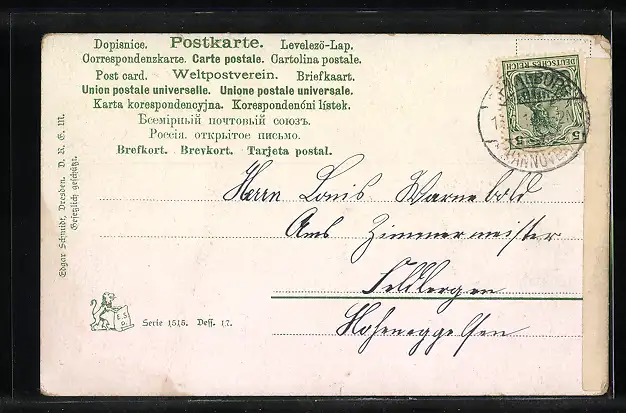 Dopisnice. Postkarte. Levelező-Lap.
Correspondenzkarte. Carte postale. Cartolina postale.
Post card. Weltpostverein. Briefkaart.
Union postale universelle. Unione postale universale.
Karta korespondencyjna. Korespondenóni listek.
Всемірный почтовый союзъ.
Россія. открытое письмо.
Brefkort. Brevkort. Tarjeta postal.
DEUTSCHES REICH
5 5
HANNOVER
Herrn Louis Warnebold
Zimmermeister
Feldbergen
Hoheneggelsen
Edgar Schmidt, Dresden. D. R. G. M.
Gesetzlich geschützt.
E.S.
D.
Serie 1515. Dess. 17.